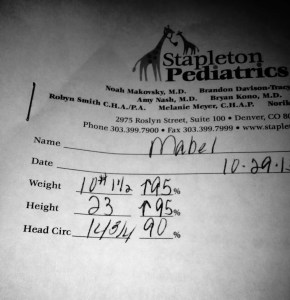 Stapleton
Pediatrics
Noah Makovsky, M.D. Brandon Davison-Tracy
Amy Nash, M.D. Bryan Kono, M.D.
Robyn Smith C.H.A./P.A. Melanie Meyer, C.H.A.P.
2975 Roslyn Street, Suite 100 • Denver, CO 80
Phone 303.399.7900 • Fax 303.399.7999 • www.staple
Name Mabel
Date 10-29-1
Weight 10# 1 1/2 ↑95%
Height 23 ↑95%
Head Circ 14 3/4 90%